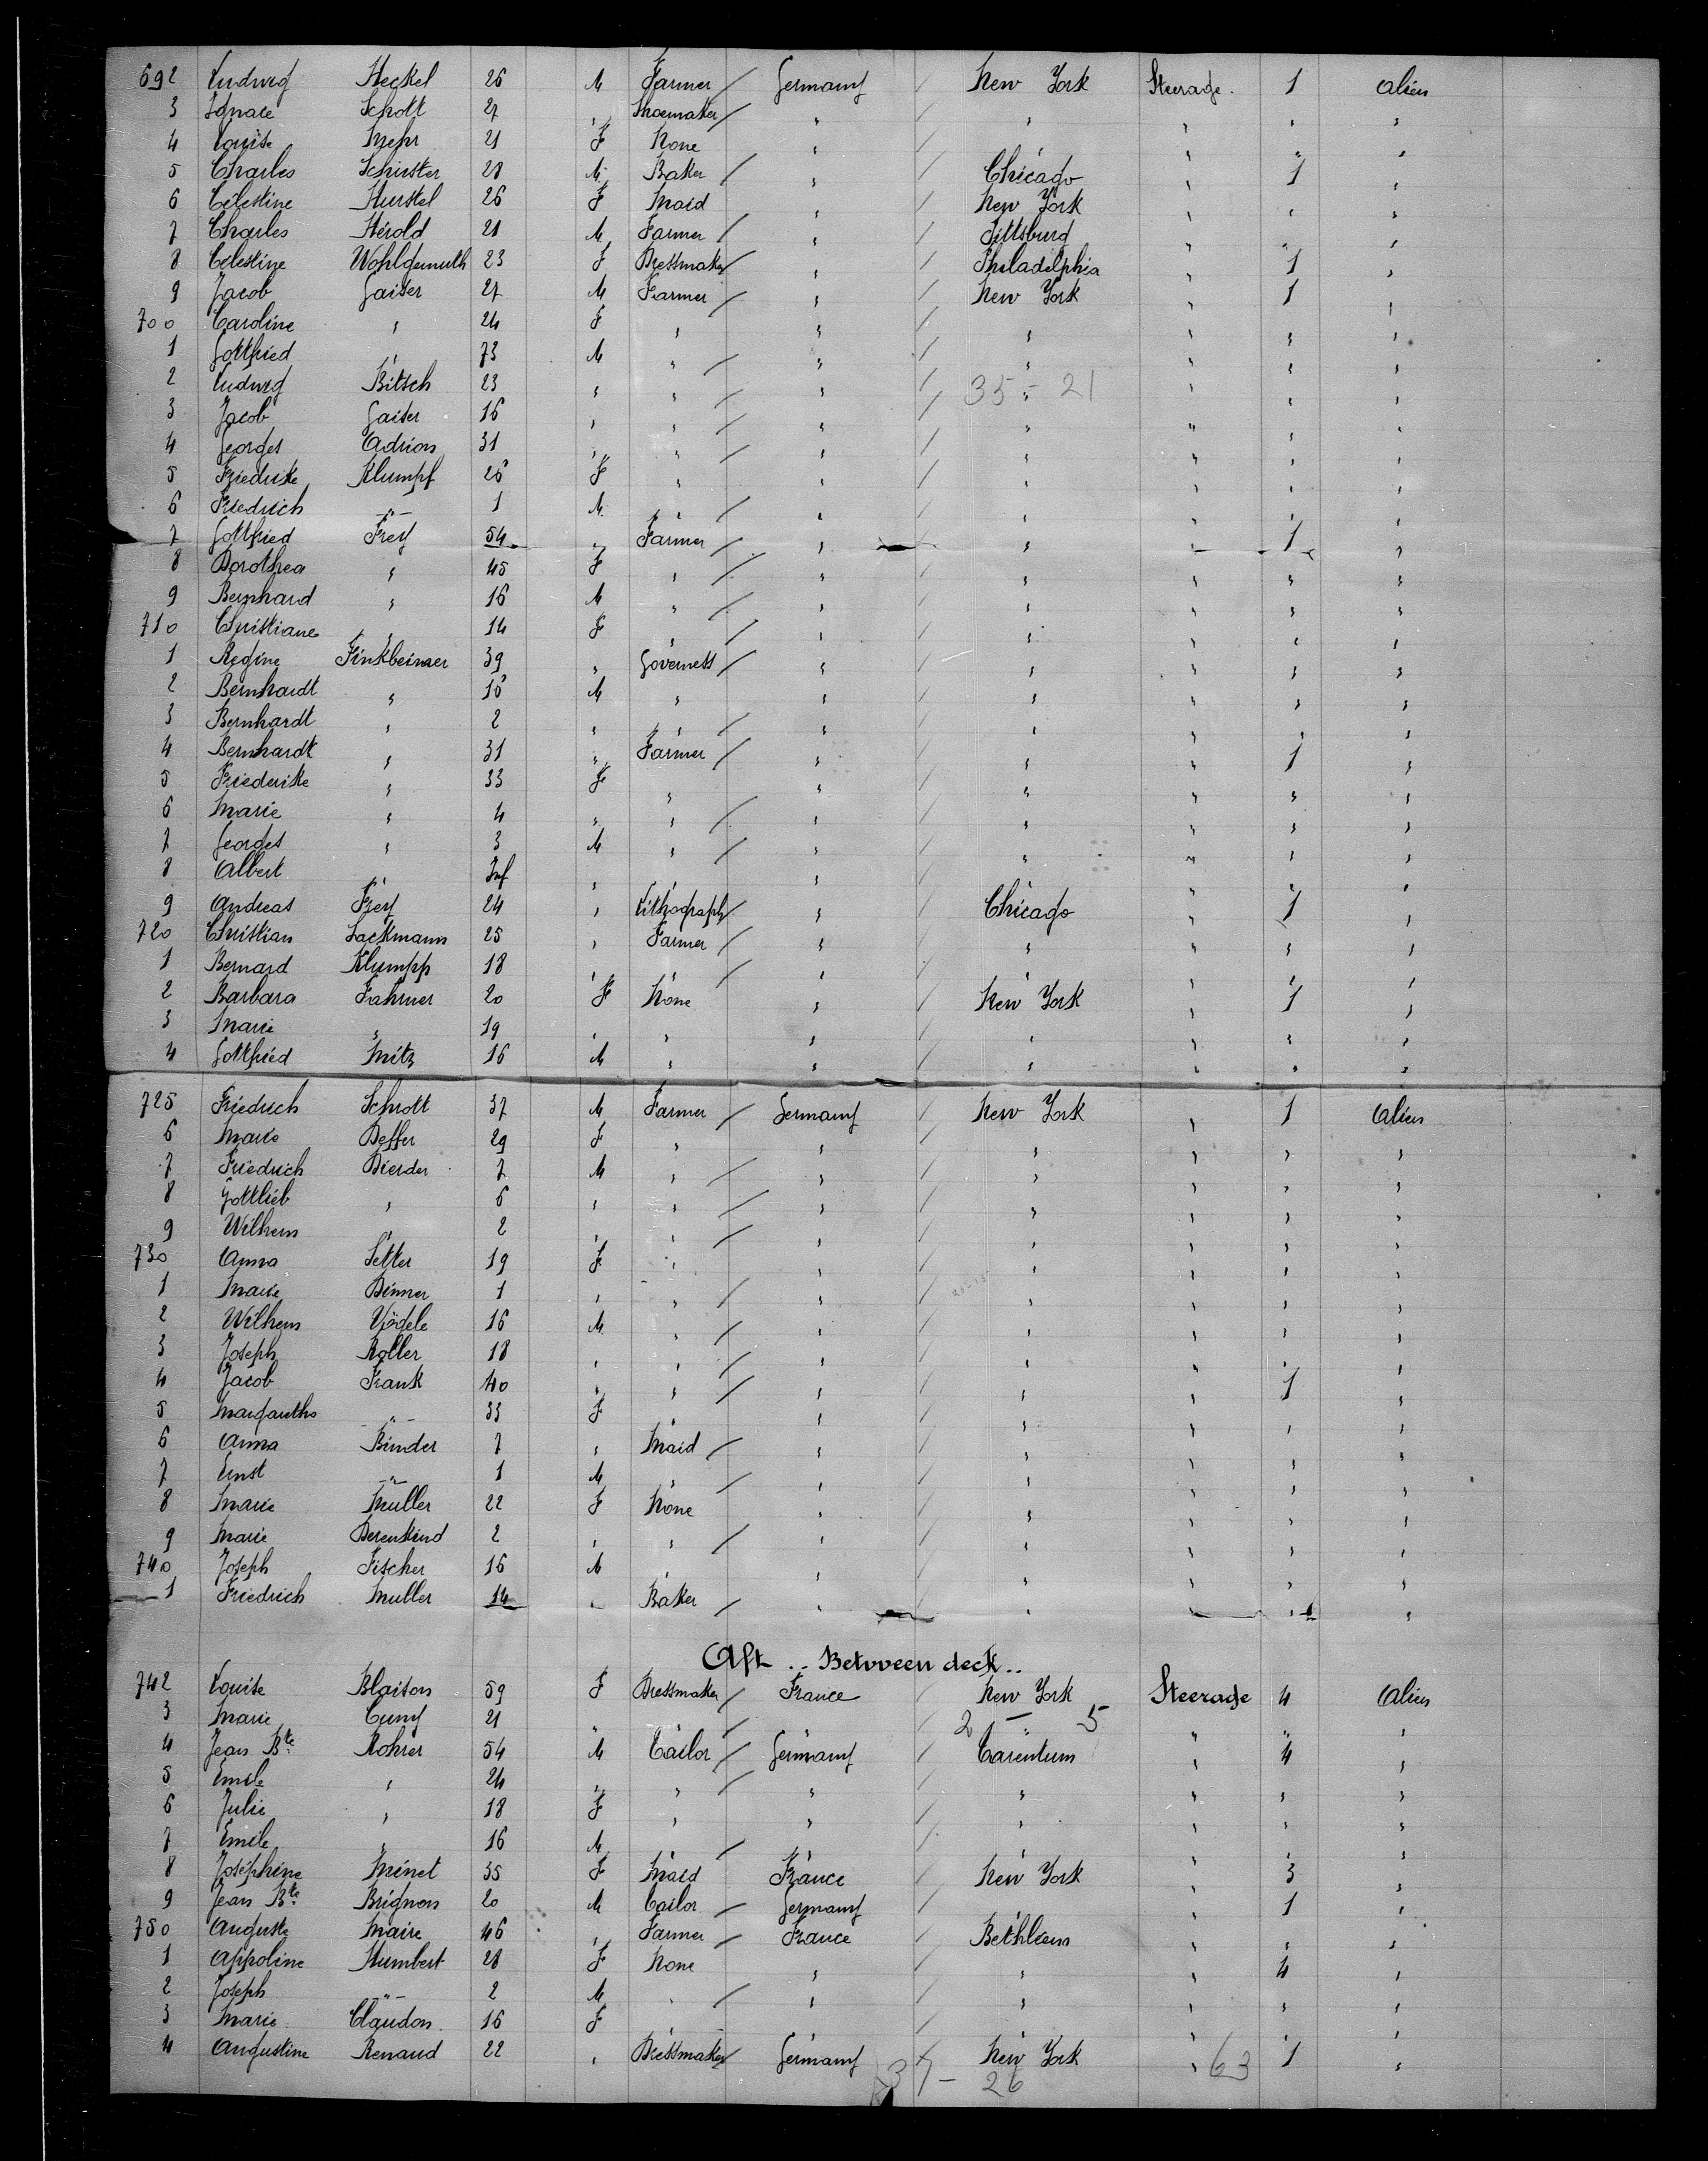 692 Ludwig Heckel 26 M Farmer / Germany / New York Steerage. 1 Alien
3 Ignace Schott 27 " Shoemaker / " / " " " "
4 Louise Mehr 21 F None " / " " " "
5 Charles Schuster 28 M Baker / " / Chicago " 1 "
6 Célestine Hurstel 26 F Maid " / New York " " "
7 Charles Hérold 21 M Farmer / " / Pittsburg " " "
8 Célestine Wohlgemuth 23 F Dressmaker / " / Philadelphia " 1 "
9 Jacob Gaiser 27 M Farmer / " / New York " 1 "
700 Caroline " 24 F " " / " " " "
1 Gottfried " 73 M " / " / " " " "
2 Ludwig Bitsch 23 " " / " / " 35 - 21 " " "
3 Jacob Gaiser 16 " " / " / " " " "
4 Georges Adrion 31 " " / " / " " " "
5 Friedrike Klumpf 26 F " " / " " " "
6 Friedrich -"- 1 M " / " / " " " "
7 Gottfried Frey 54 " Farmer / " / " " 1 "
8 Dorothea " 45 F " / " / " " " "
9 Bernhard " 16 M " / " / " " " "
710 Christiane " 14 F " / " / " " " "
1 Regine Finkbeiner 39 " Governess / " / " " " "
2 Bernhardt " 16 M " " / " " " "
3 Bernhardt " 2 " " / " / " " " "
4 Bernhardt " 31 " Farmer / " / " " 1 "
5 Friederike " 33 F " " / " " " "
6 Marie " 4 " " / " / " " " "
7 Georges " 3 M " / " / " " " "
8 Albert " Inf " " " / " " " "
9 Andreas Frey 24 " Lithograph / " / Chicago " 1 "
720 Christian Lackmann 25 " Farmer / " / " " " "
1 Bernard Klumpp 18 " " / " / " " " "
2 Barbara Fahrner 20 F None " / New York " 1 "
3 Marie " 19 " " " / " " " "
4 Gottfried Mitz 16 M " " / " " " "
725 Friedrich Schrott 37 M Farmer / Germany / New York " 1 Alien
6 Marie Deffer 29 F " " / " " " "
7 Friedrich Dierder 7 M " / " / " " " "
8 Gottlieb " 6 " " / " / " " " "
9 Wilhem " 2 " " / " / " " " "
730 Anna Setter 19 F " " / " " " "
1 Marie Dinner 1 " " / " / " " " "
2 Wilhem Vögele 16 M " / " / " " " "
3 Joseph Roller 18 " " / " / " " " "
4 Jacob Frank 40 " " / " / " " 1 "
5 Margaritha -"- 33 F " " / " " " "
6 Anna Binder 7 " Maid / " / " " " "
7 Ernst -"- 1 M " / " / " " " "
8 Marie Muller 22 F None " / " " " "
9 Marie Derenkind 2 " " / " / " " " "
740 Joseph Fischer 16 M " / " " " "
1 Friedrich Muller 14 " Baker / " / " " " "
Aft .. Between deck ..
742 Louise Blaison 59 F Dressmaker / France / New York Steerage 4 Alien
3 Marie Cuny 21 " / / " 2 - 5 " " "
4 Jean Bte Rohrer 54 M Tailor / Germany / Tarentum " 4 "
5 Emile " 24 " " / " / " " " "
6 Julie " 18 F " " / " " " "
7 Emile " 16 M " / " / " " " "
8 Joséphine Minet 35 F Maid France / New York " 3 "
9 Jean Bte Brignon 20 M Tailor / Germany / " 1 "
750 Auguste Maire 46 " Farmer / France / Bethleem " " "
1 Appoline Humbert 28 F None " / " " 4 "
2 Joseph -"- 2 M " / " / " " " "
3 Marie Claudon 16 F " " / " " " "
4 Augustine Renaud 22 " Dressmaker / Germany / New York " 63 1 "
37 - 26